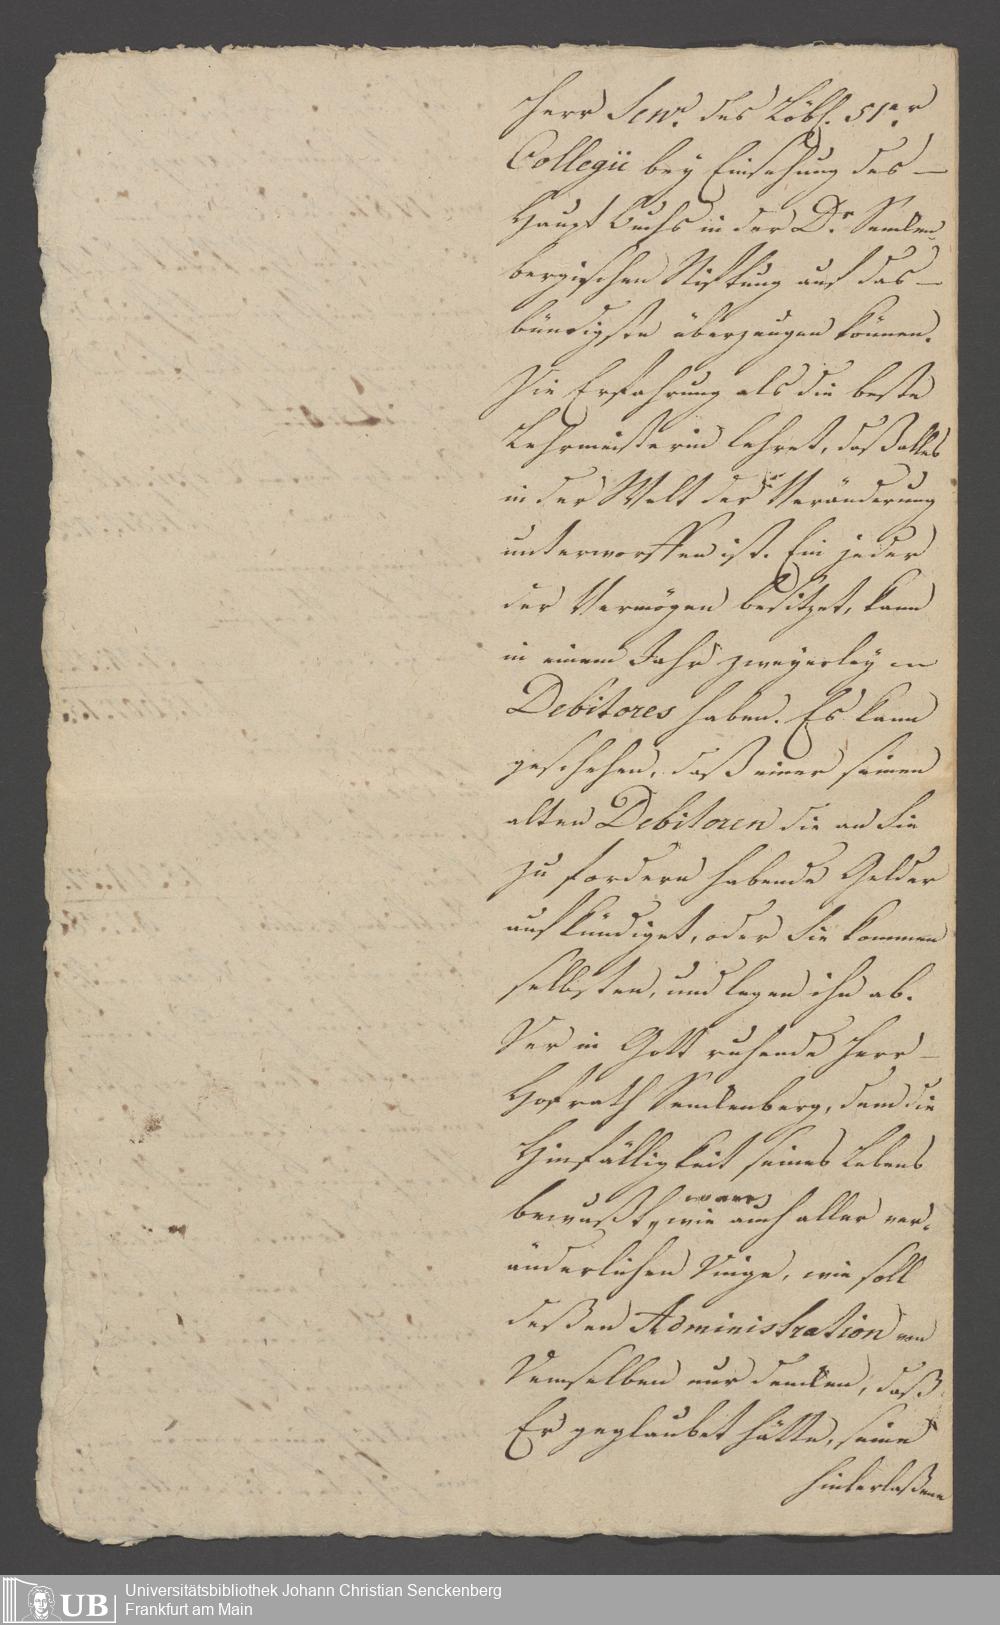 Herr Senr. des Löbl. 51er
Collegii bey Einsehung des —
Haupt Buchs in der Dr. Senken
bergischen Stiftung auf das —
bündigste überzeugen können.
Die Erfahrung als die beste
Lehrmeisterin lehret, daß alles
in der Welt der Veränderung
unterworffen ist. Ein jeder
der Vermögen besitzet, kann
in einem Jahr zweyerley
Debitores haben. Es kann
geschehen, daß einer seinen
alten Debitoren die an Sie
zu fordern habende Gelder
aufkündiget, oder Sie kommen
selbsten, und legen ihn ab.
Der in Gott ruhende Herr —
Hofrath Senkenberg, dem die
Hinfälligkeit seines Lebens
waren
bewußt, wie auch aller ver-
änderlichen Dinge, wie soll
deßen Administration von
Demselben nur denken, daß
Er geglaubet hätte, seine
hinterlaßene
Universitätsbibliothek Johann Christian Senckenberg
Frankfurt am Main
UB